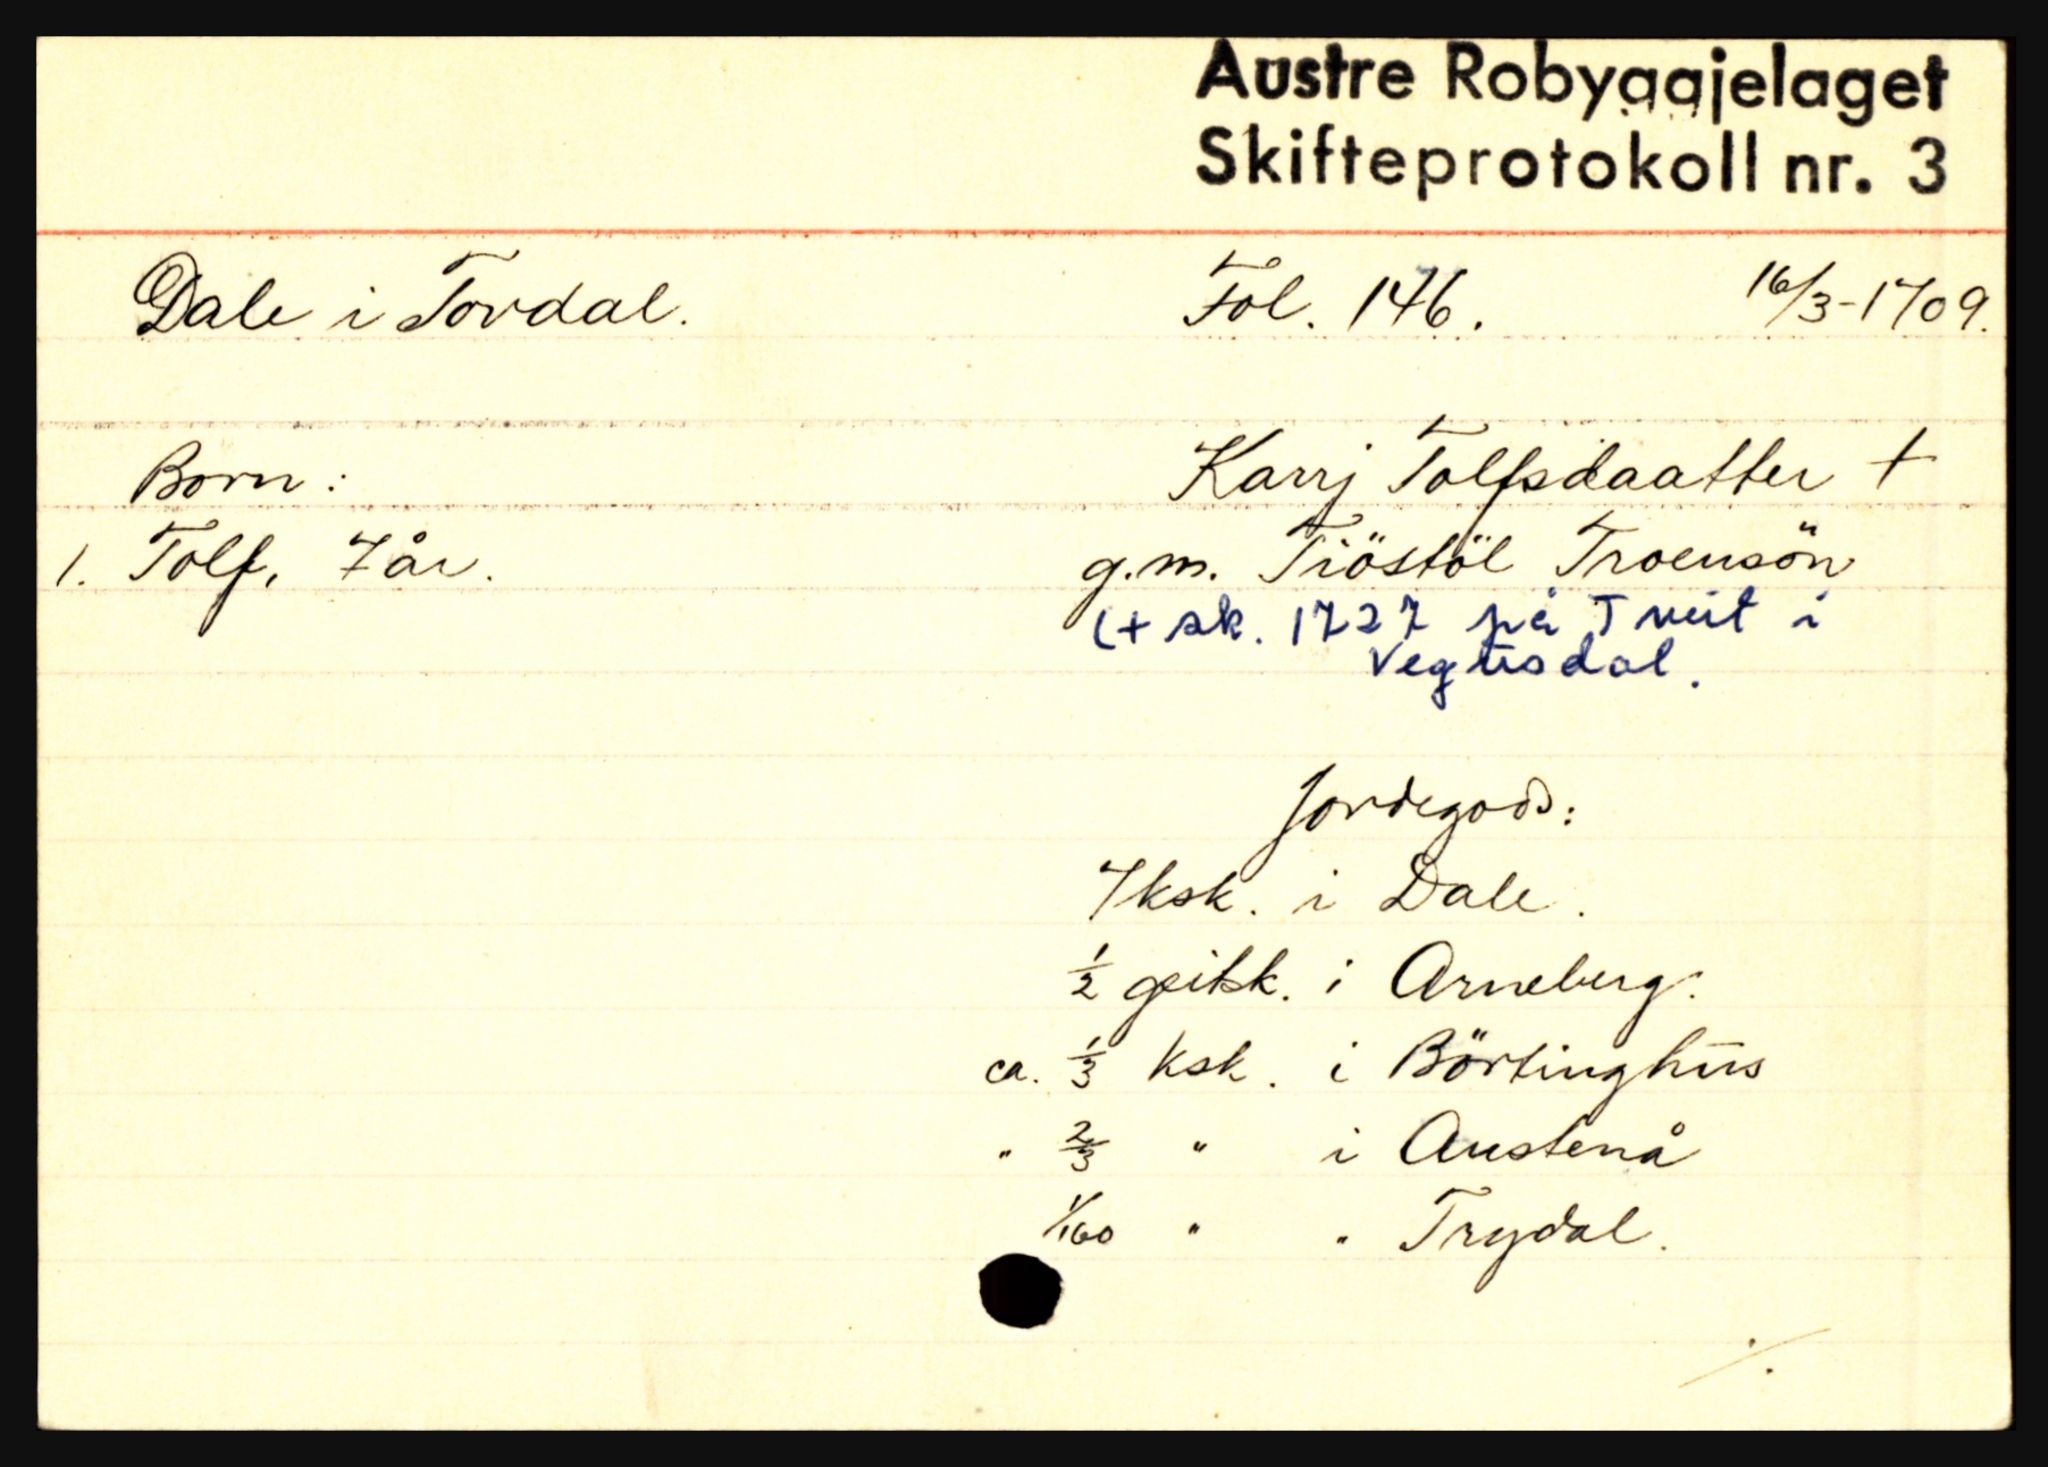 Austre Robyggjelaget
Skifteprotokoll nr. 3
Dale i Tovdal. Fol. 146. 16/3-1709.
Born: Karrj Tolfsdaatter +
1. Tolf, 7 år. g.m. Tiöstöl Troensön
(+ sk. 1727 på Tveit i
Vegusdal.
Jordegods:
7 ksk. i Dale.
1/2 geitsk. i Arneberg.
ca. 1/3 ksk. i Börtinghus
" 2/3 " i Austenå
1/160 " " Trydal.
./.